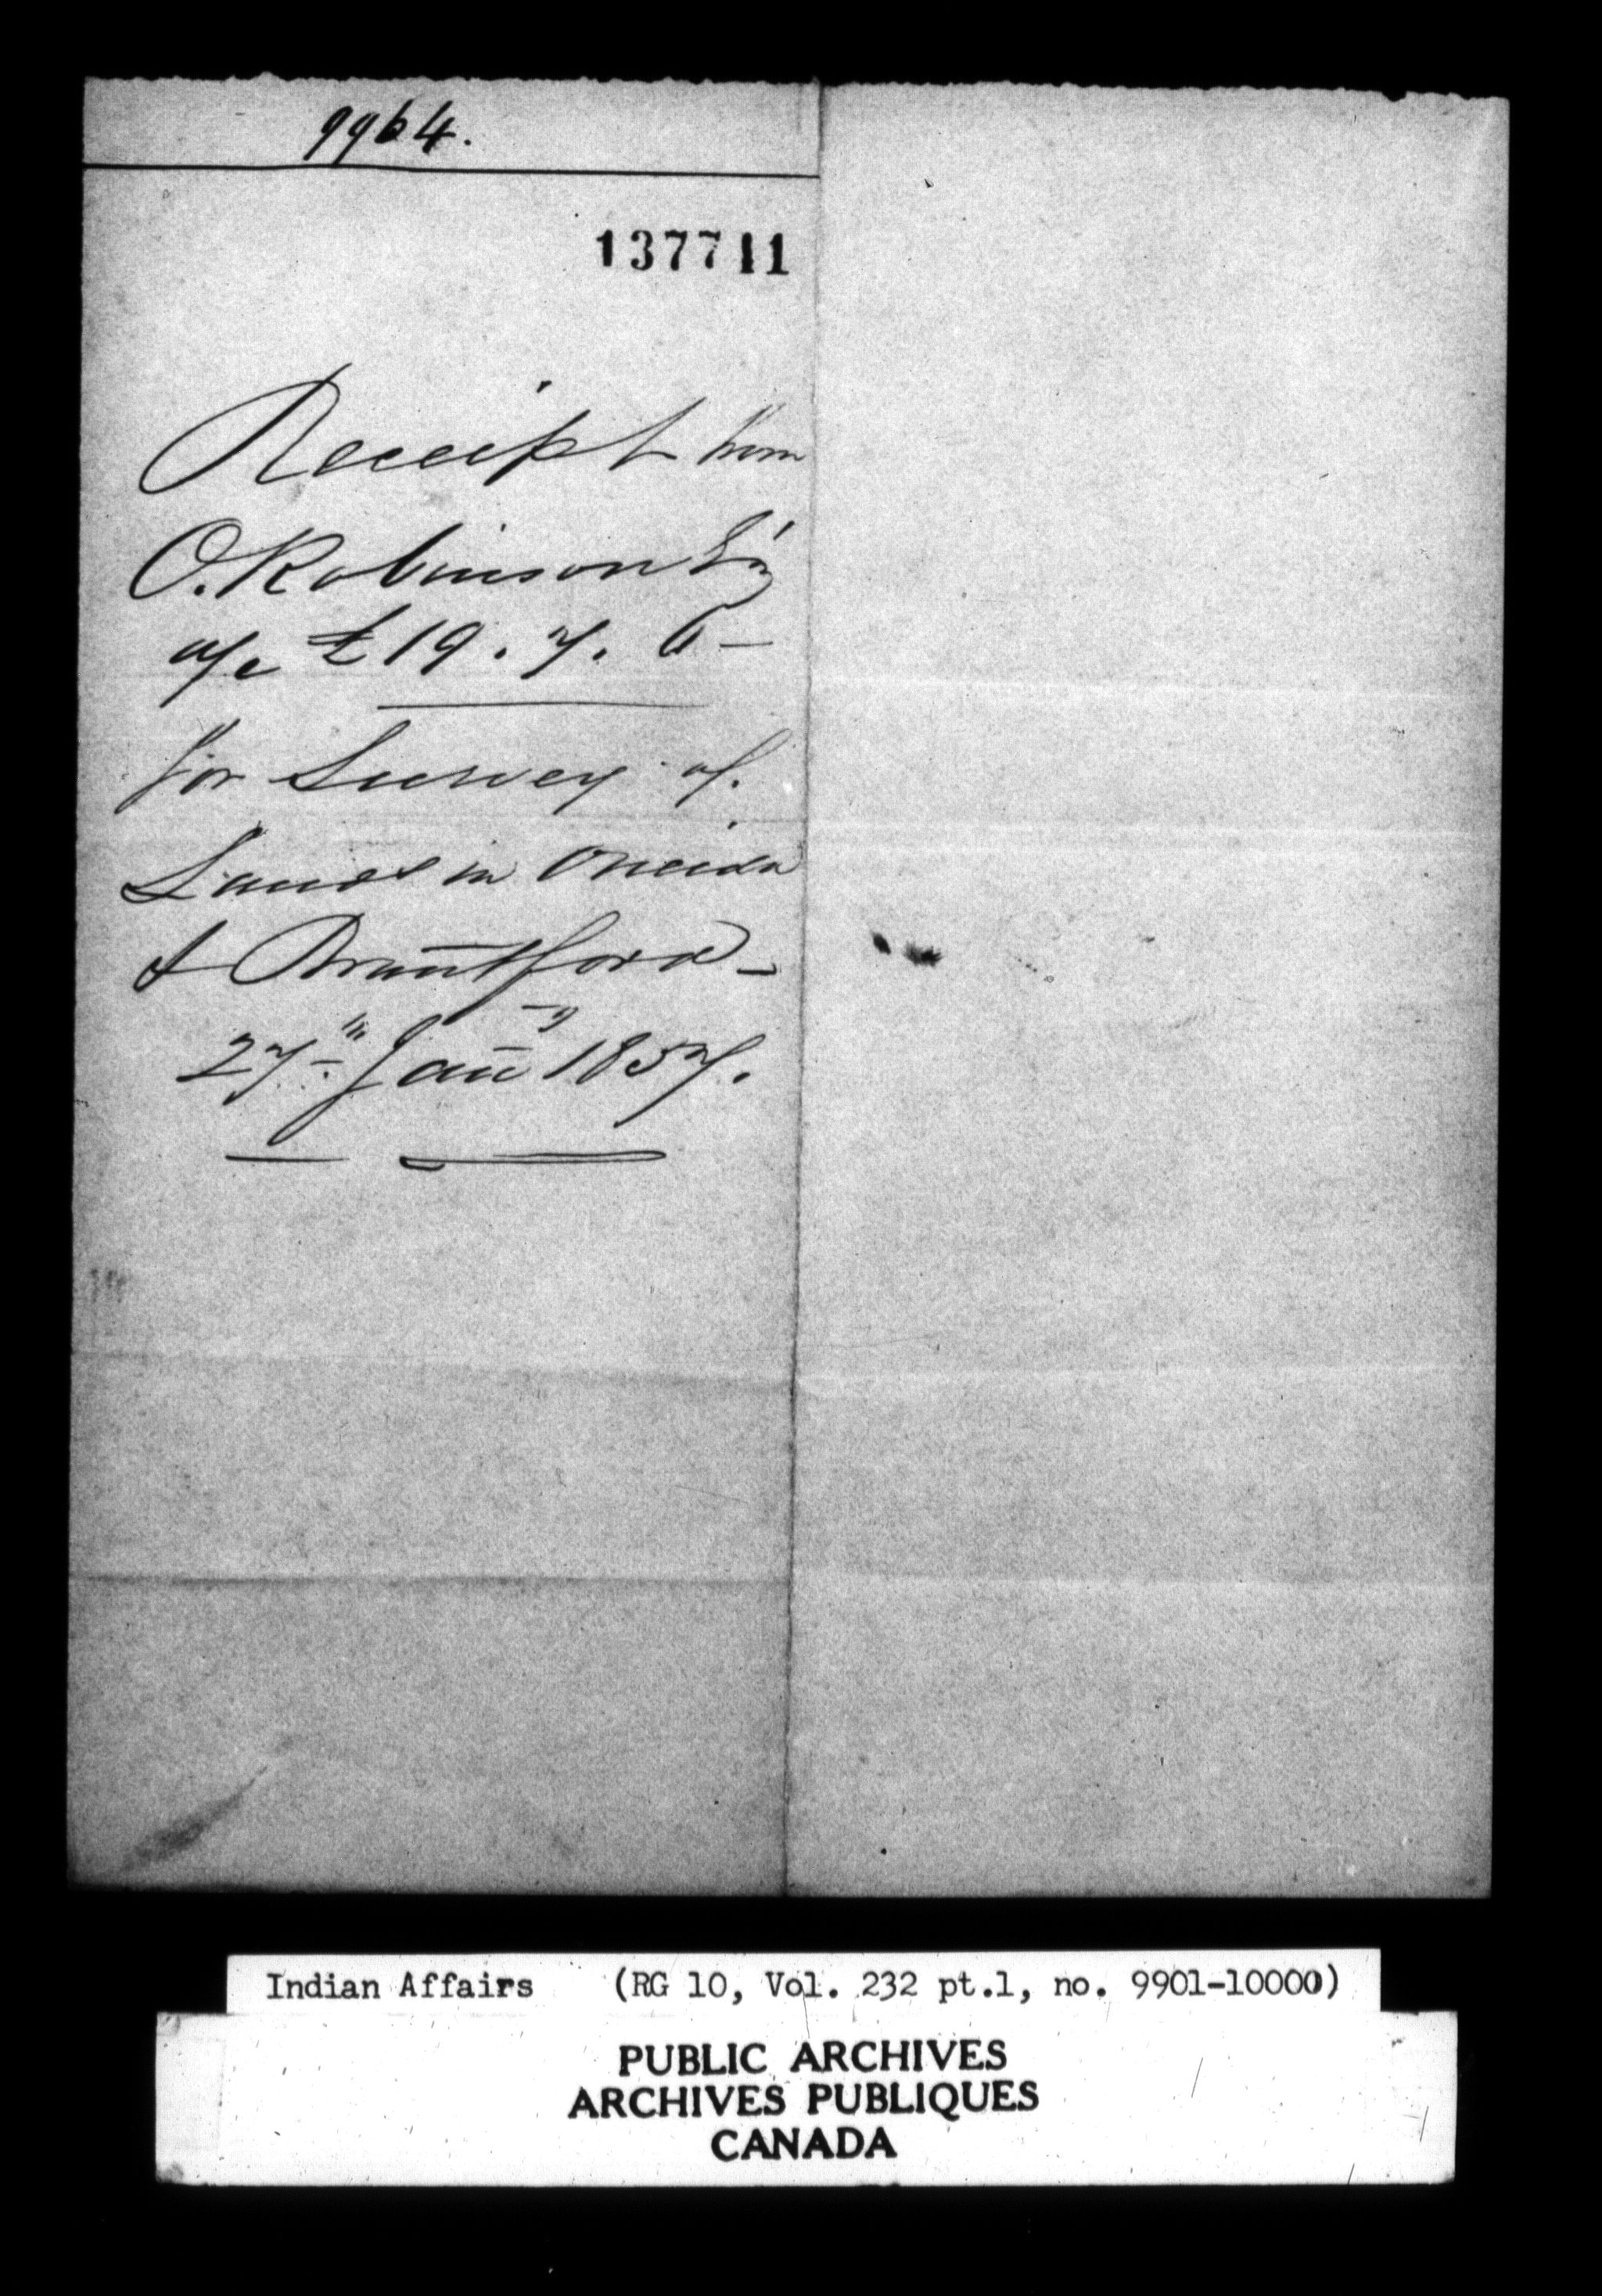 9964.
137711
Receipt from
O. Robinson Esq
a/c £19. 7. 6 –
for Survey of
Lands in Oneida
& Brantford –
27th Jany 1857.
Indian Affairs (RG 10, Vol. 232 pt.1, no. 9901-10000)
PUBLIC ARCHIVES
ARCHIVES PUBLIQUES
CANADA